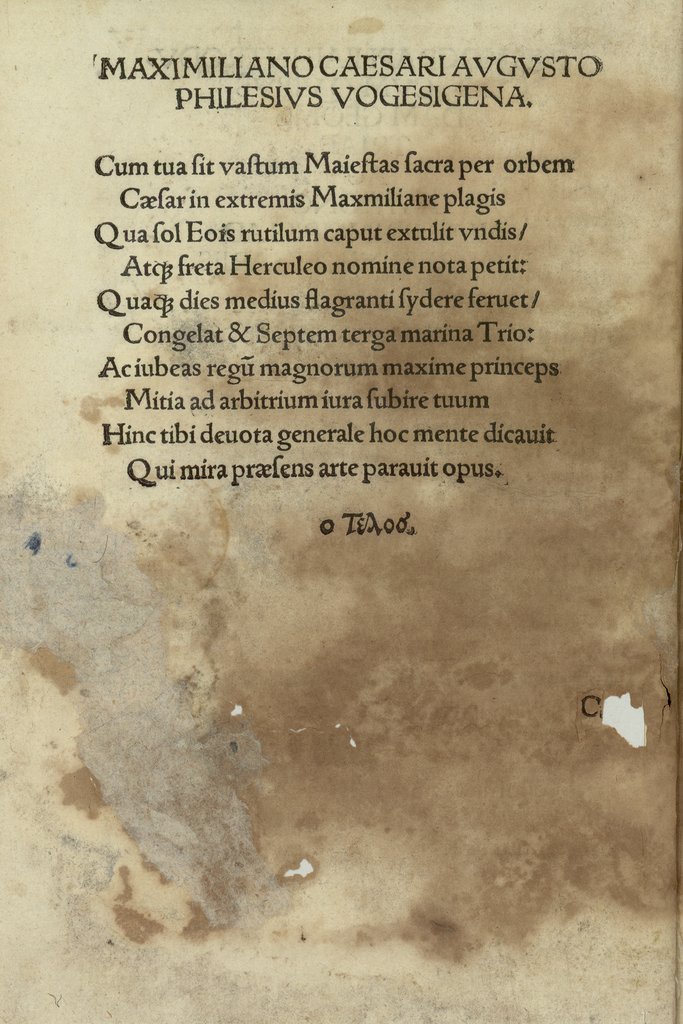 MAXIMILIANO CAESARI AVGVSTO
PHILESIVS VOGESIGENA.
Cum tua ſit vaſtum Maieſtas ſacra per orbem
Cæſar in extremis Maxmiliane plagis
Qua ſol Eois rutilum caput extulit vndis/
Atqꝫ freta Herculeo nomine nota petit:
Quaqꝫ dies medius flagranti ſydere feruet/
Congelat & Septem terga marina Trio:
Ac iubeas regũ magnorum maxime princeps
Mitia ad arbitrium iura ſubire tuum
Hinc tibi deuota generale hoc mente dicauit
Qui mira præſens arte parauit opus.
ο Τέλος.